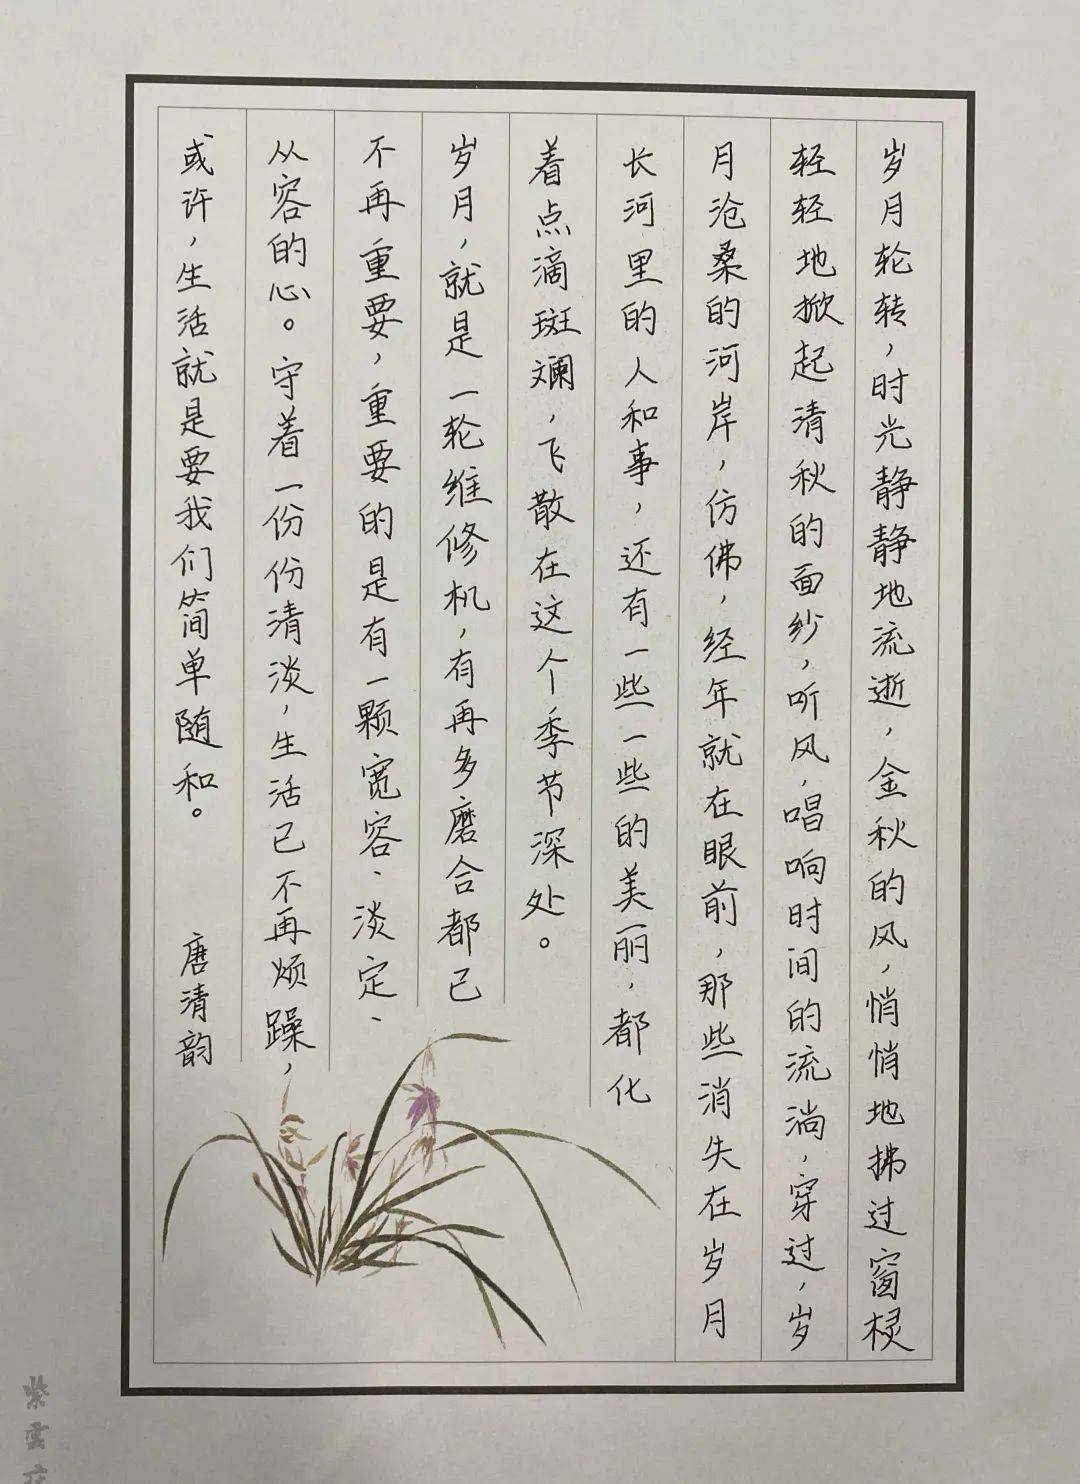 岁月轮转，时光静静地流逝，金秋的风，悄悄地拂过窗棂
轻轻地掀起清秋的面纱，听风，唱响时间的流淌，穿过，岁
月沧桑的河岸，仿佛，经年就在眼前，那些消失在岁月
长河里的人和事，还有一些一些的美丽，都化
着点滴斑斓，飞散在这个季节深处。
岁月，就是一轮维修机，有再多磨合都已
不再重要，重要的是有一颗宽容、淡定、
从容的心。守着一份份清淡，生活已不再烦躁，
或许，生活就是要我们简单随和。 唐清韵
紫雲庄